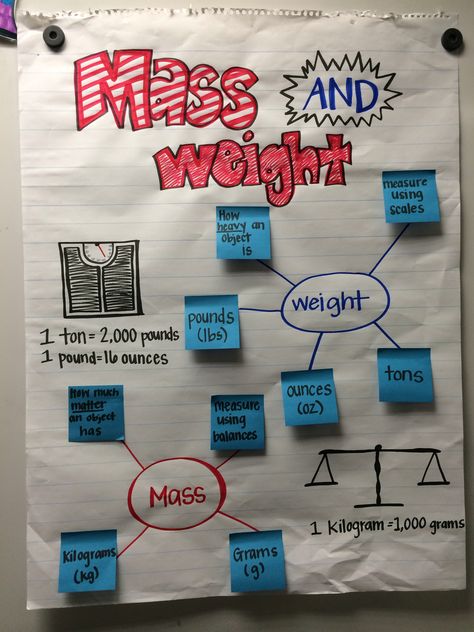 Mass
AND
weight
How
heavy an
object
is
measure
using
scales
pounds
(lbs)
weight
ounces
(oz)
tons
1 ton = 2,000 pounds
1 pound = 16 ounces
How much
matter
an object
has
Measure
using
balances
Mass
Kilograms
(kg)
Grams
(g)
1 Kilogram = 1,000 grams